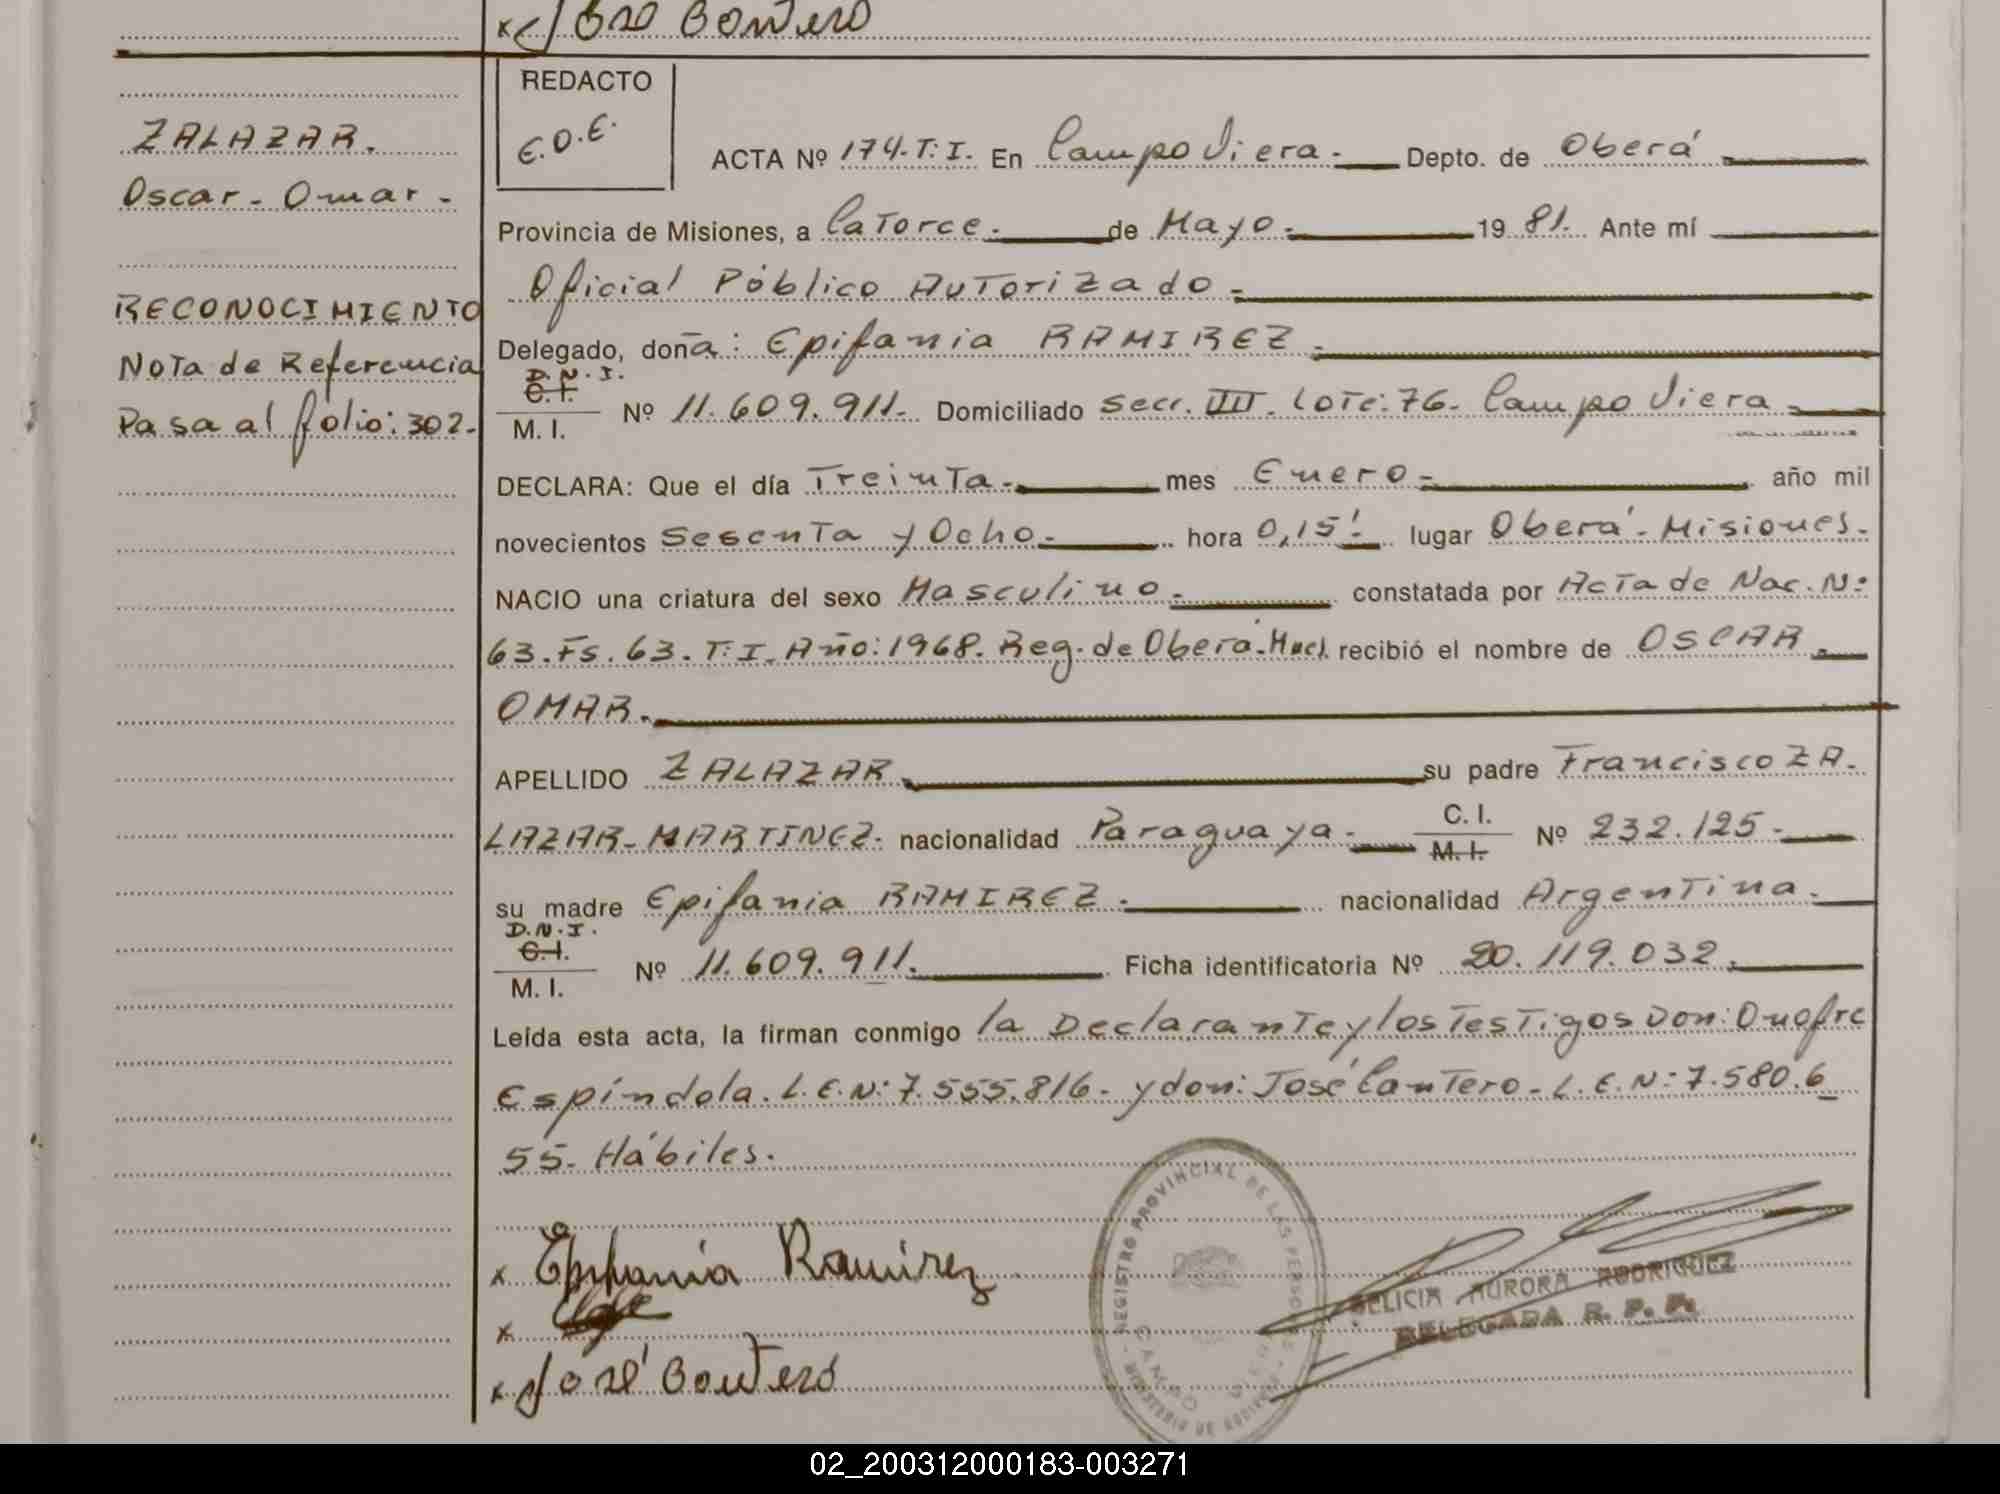 x José Contero
REDACTO
E.O.E.
ZALAZAR.
Oscar - Omar -
RECONOCIMIENTO
Nota de Referencia
Pasa al folio: 302.
ACTA Nº 174-T:I. En Campo Viera. Depto. de Oberá
Provincia de Misiones, a Catorce. de Mayo. 19 81. Ante mí
Oficial Público Autorizado -
Delegado, doña: Epifania RAMIREZ -
D.N.I.
C.I.
M. I.
Nº 11.609.911. Domiciliado secc. III. Lote: 76. Campo Viera
DECLARA: Que el día Treinta. mes Enero. año mil
novecientos Sesenta y Ocho. hora 0,15' lugar Oberá - Misiones.
NACIO una criatura del sexo Masculino. constatada por Acta de Nac. N:
63. Fs. 63. T: I. Año: 1968. Reg. de Oberá. Mnes. recibió el nombre de OSCAR
OMAR.
APELLIDO ZALAZAR su padre Francisco ZA-
LAZAR - MARTINEZ. nacionalidad Paraguaya. C. I. M. I. Nº 232.125.
su madre Epifania RAMIREZ. nacionalidad Argentina.
D.N.I.
C.I.
M. I.
Nº 11.609.911. Ficha identificatoria Nº 20.119.032.
Leída esta acta, la firman conmigo la Declarante y los Testigos Don: Onofre
Espíndola. L.E.N: 7.555.816. y don: José Cantero - L.E.N: 7.580.6
55. Hábiles.
x Epifania Ramirez
x
x José Contero
REGISTRO PROVINCIAL DE LAS PERSONAS
CAMPO VIERA
FELICIA AURORA RODRIGUEZ
DELEGADA R. P. P.
02_200312000183-003271